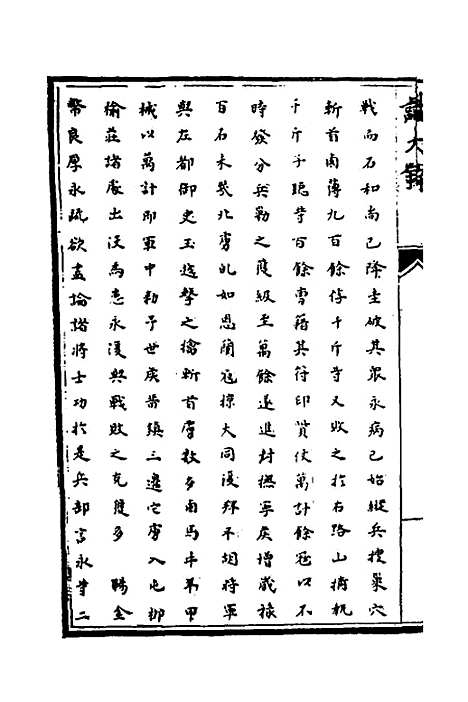 戰而石和尚已降圭破其眾永病已始縱兵搜巢穴
斬首鹵薄九百餘俘千斤等又敗之於右路山擒机
千斤子聰等百餘曹藉其符印貲仗萬計餘寇以不
時發分兵勒之獲級至萬餘遂進封撫寧矦增歲祿
百石未幾北虜乩如思蘭寇掠大同復拜平胡將軍
與左都御史玉越擊之擒斬首虜數多鹵馬牛弔甲
械以萬計即軍中勑予世矦昔鎮三邊它虜入屯綁
榆莊諸處出没為患永復與戰敗之克獲多 賜金
幣良厚永疏欲盡論諸將士功於是兵部言永等二